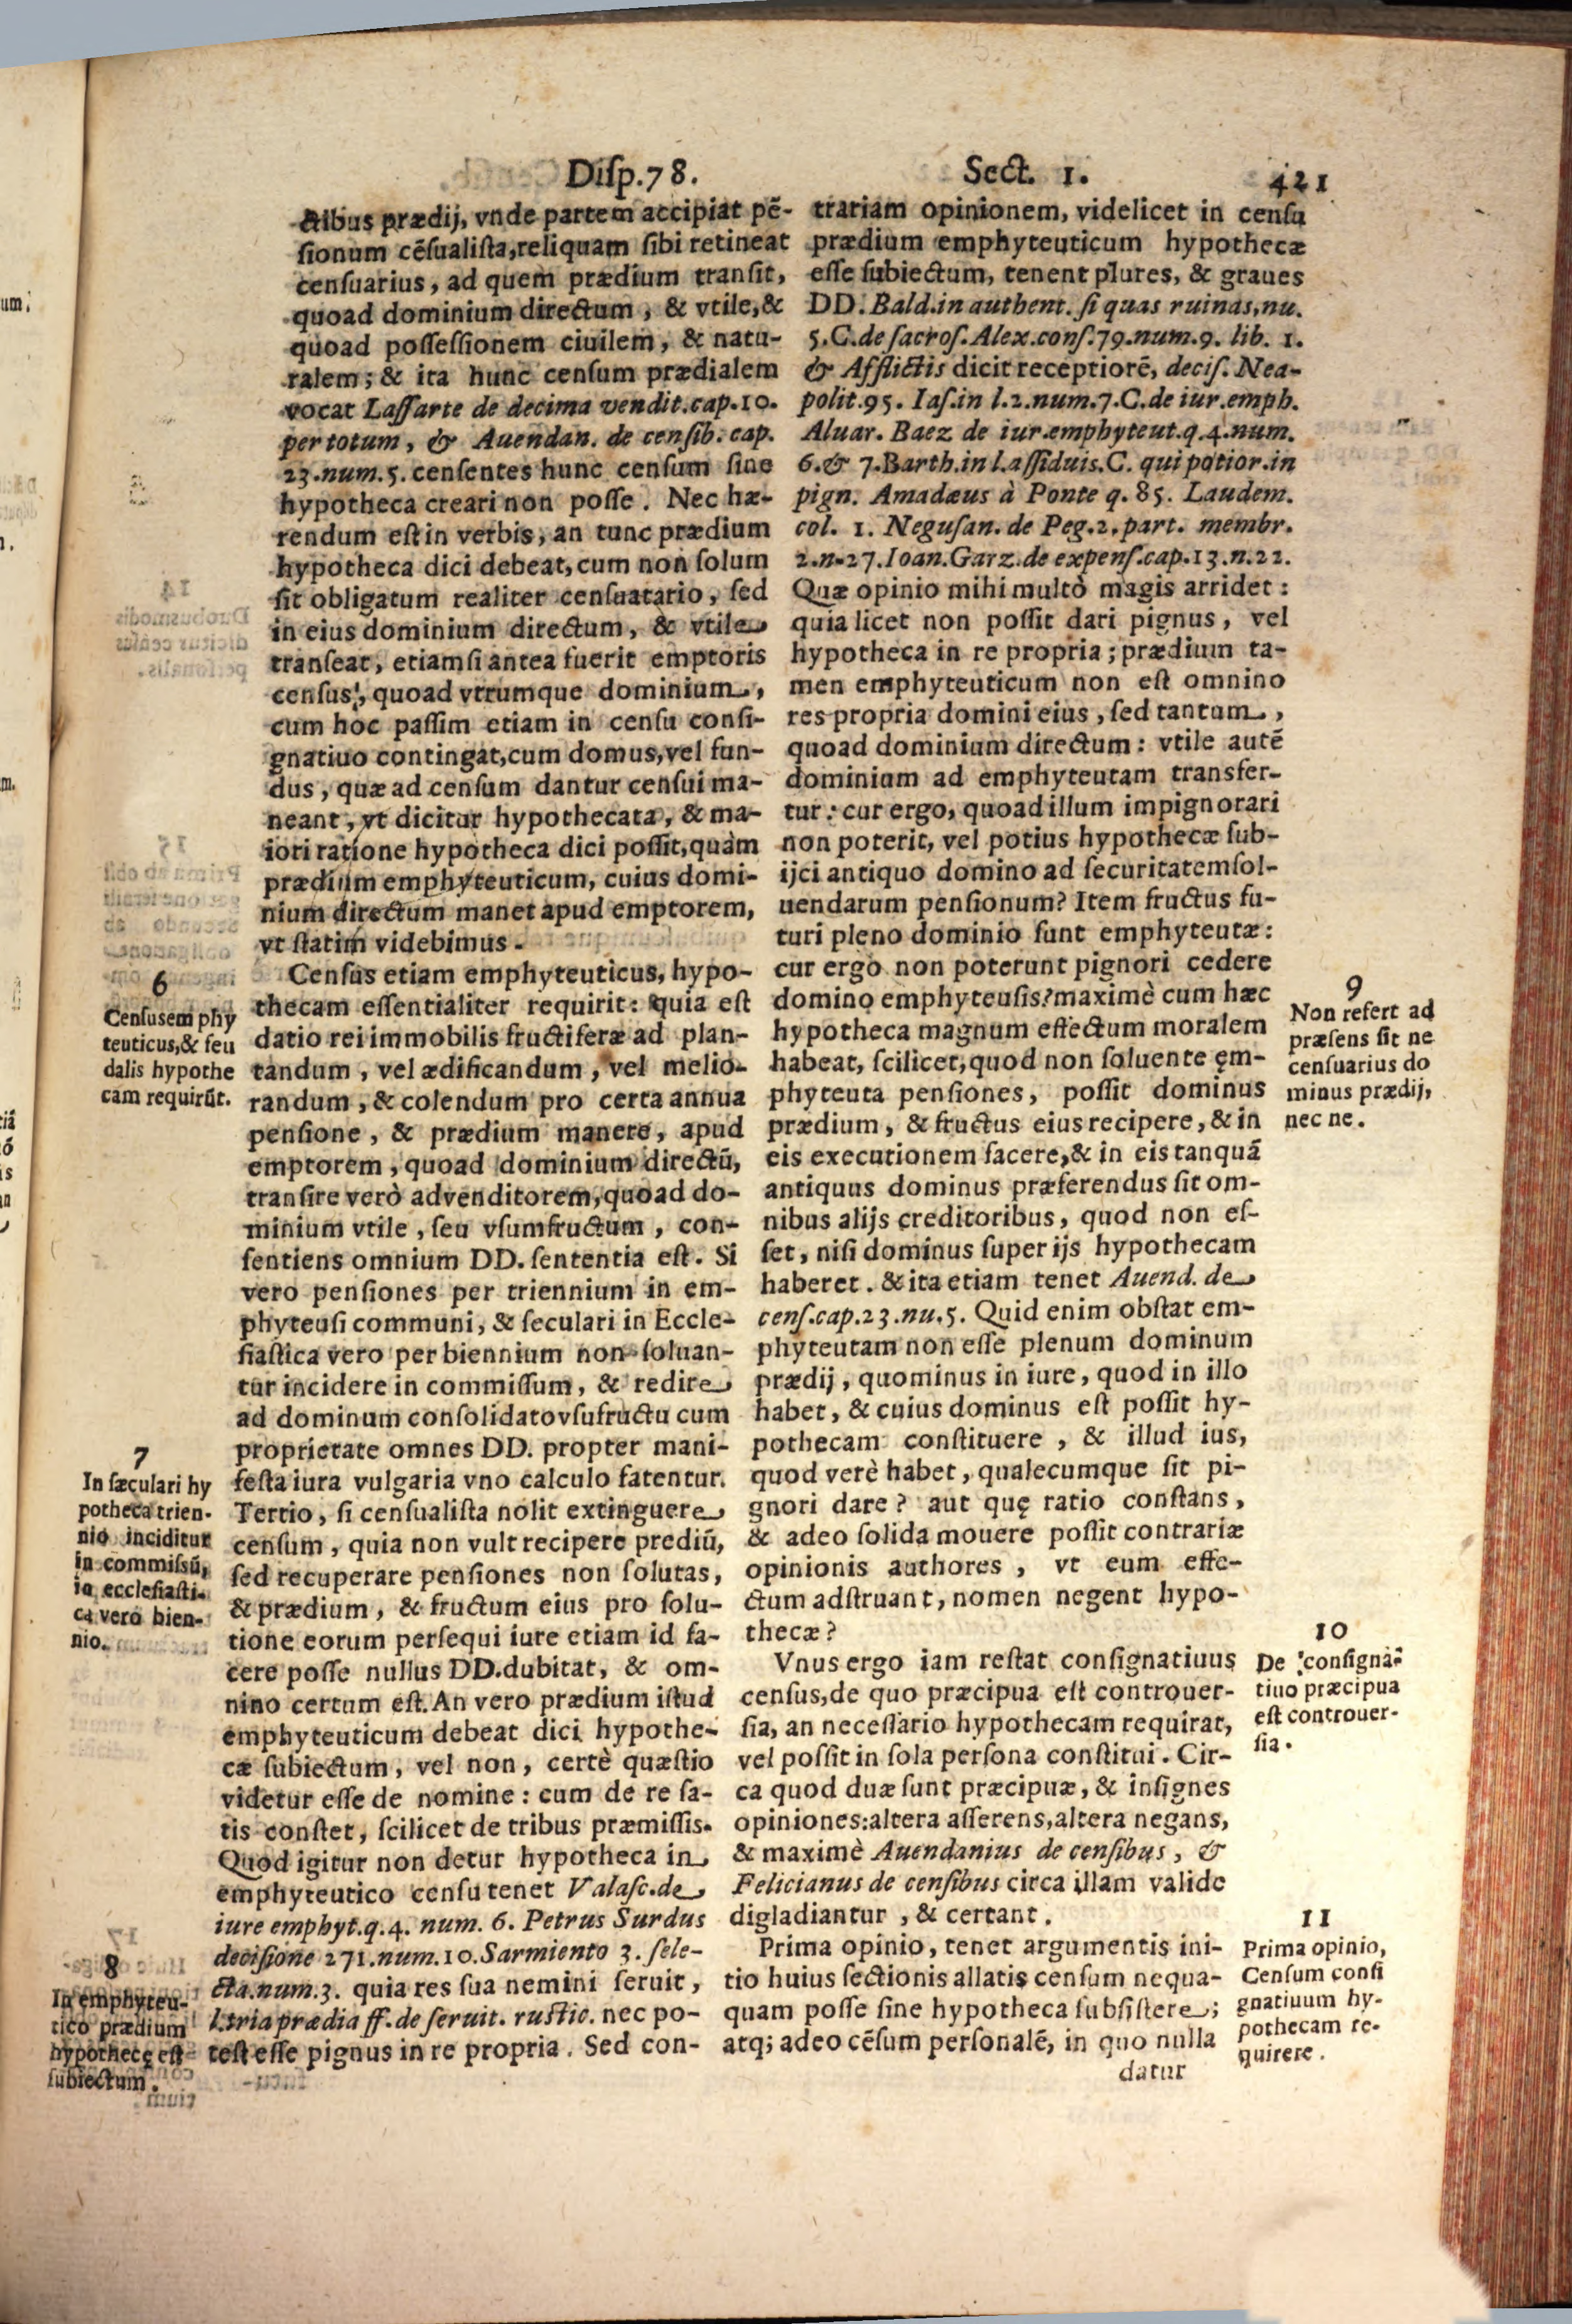 Diſp.78. Sect. 1. 421
ctibus prædij, vnde partem accipiat pē-
ſionum cēſualiſta,reliquam ſibi retineat
cenſuarius, ad quem prædium tranſit,
quoad dominium directum, & vtile,&
quoad poſſeſſionem ciuilem, & natu-
ralem; & ita hunc cenſum prædialem
vocat Laſſarte de decima vendit.cap.10.
per totum, & Auendan. de cenſib. cap.
23.num.5. cenſentes hunc cenſum ſine
hypotheca creari non poſſe. Nec hæ-
rendum eſt in verbis, an tunc prædium
hypotheca dici debeat, cum non ſolum
ſit obligatum realiter cenſuatario, ſed
in eius dominium directum, & vtile
tranſeat, etiamſi antea fuerit emptoris
cenſus, quoad vtrumque dominium,
cum hoc paſſim etiam in cenſu conſi-
gnatiuo contingat,cum domus,vel fun-
dus, quæ ad cenſum dantur cenſui ma-
neant, vt dicitur hypothecata, & ma-
iori ratione hypotheca dici poſſit,quàm
prædium emphyteuticum, cuius domi-
nium directum manet apud emptorem,
vt ſtatim videbimus.
6
Cenſus emphy
teuticus,& feu
dalis hypothe
cam requirūt.
Cenſus etiam emphyteuticus, hypo-
thecam eſſentialiter requirit: quia eſt
datio rei immobilis fructiferæ ad plan-
tandum, vel ædificandum, vel melio-
randum, & colendum pro certa annua
penſione, & prædium manere, apud
emptorem, quoad dominium directū,
tranſire verò ad venditorem,quoad do-
minium vtile, ſeu vſumfructum, con-
ſentiens omnium DD. ſententia eſt. Si
vero penſiones per triennium in em-
phyteuſi communi, & ſeculari in Eccle-
ſiaſtica vero per biennium non ſoluan-
tur incidere in commiſſum, & redire
ad dominum conſolidato vſufructu cum
proprietate omnes DD. propter mani-
feſta iura vulgaria vno calculo fatentur.
7
In ſæculari hy
potheca trien-
nio inciditur
in commiſsū,
in eccleſiaſti-
ca vero bien-
nio.
Tertio, ſi cenſualiſta nolit extinguere
cenſum, quia non vult recipere prediū,
ſed recuperare penſiones non ſolutas,
& prædium, & fructum eius pro ſolu-
tione eorum perſequi iure etiam id fa-
cere poſſe nullus DD.dubitat, & om-
nino certum eſt. An vero prædium iſtud
emphyteuticum debeat dici hypothe-
cæ ſubiectum, vel non, certè quæſtio
videtur eſſe de nomine: cum de re ſa-
tis conſtet, ſcilicet de tribus præmiſſis.
Quod igitur non detur hypotheca in
emphyteutico cenſu tenet Valaſc.de
iure emphyt.q.4. num. 6. Petrus Surdus
deciſione 271.num.10.Sarmiento 3. ſele-
cta.num.3. quia res ſua nemini ſeruit,
l.tria prædia ff.de ſeruit. ruſtic. nec po-
teſt eſſe pignus in re propria. Sed con-
8
In emphyteu-
tico prædium
hypothecę eſt
ſubiectum.
trariam opinionem, videlicet in cenſu
prædium emphyteuticum hypothecæ
eſſe ſubiectum, tenent plures, & graues
DD. Bald.in authent. ſi quas ruinas,nu.
5.C.de ſacroſ. Alex.conſ.79.num.9. lib. 1.
& Afflictis dicit receptiorē, deciſ. Nea-
polit.95. Iaſ.in l.2.num.7.C.de iur.emph.
Aluar. Baez de iur.emphyteut.q.4.num.
6.& 7.Barth.in l.aſſiduis.C. qui potior.in
pign. Amadæus à Ponte q. 85. Laudem.
col. 1. Neguſan. de Peg.2.part. membr.
2.n.27.Ioan.Garz.de expenſ.cap.13.n.22.
Quæ opinio mihi multò magis arridet:
quia licet non poſſit dari pignus, vel
hypotheca in re propria; prædium ta-
men emphyteuticum non eſt omnino
res propria domini eius, ſed tantum,
quoad dominium directum: vtile autē
dominium ad emphyteutam transfer-
tur: cur ergo, quoad illum impignorari
non poterit, vel potius hypothecæ ſub-
ijci antiquo domino ad ſecuritatem ſol-
uendarum penſionum? Item fructus fu-
turi pleno dominio ſunt emphyteutæ:
cur ergo non poterunt pignori cedere
domino emphyteuſis? maximè cum hæc
hypotheca magnum effectum moralem
habeat, ſcilicet,quod non ſoluente em-
phyteuta penſiones, poſſit dominus
prædium, & fructus eius recipere, & in
eis executionem facere,& in eis tanquā
antiquus dominus præferendus ſit om-
nibus alijs creditoribus, quod non eſ-
ſet, niſi dominus ſuper ijs hypothecam
haberet. & ita etiam tenet Auend. de
cenſ.cap.23.nu.5. Quid enim obſtat em-
phyteutam non eſſe plenum dominum
prædij, quominus in iure, quod in illo
habet, & cuius dominus eſt poſſit hy-
pothecam conſtituere, & illud ius,
quod verè habet, qualecumque ſit pi-
gnori dare? aut quę ratio conſtans,
& adeo ſolida mouere poſſit contrariæ
opinionis authores, vt eum effe-
ctum adſtruant, nomen negent hypo-
thecæ?
9
Non refert ad
præſens ſit ne
cenſuarius do
minus prædij,
nec ne.
Vnus ergo iam reſtat conſignatiuus
cenſus,de quo præcipua eſt controuer-
ſia, an neceſſario hypothecam requirat,
vel poſſit in ſola perſona conſtitui. Cir-
ca quod duæ ſunt præcipuæ, & inſignes
opiniones:altera aſſerens,altera negans,
& maximè Auendanius de cenſibus, &
Felicianus de cenſibus circa illam valide
digladiantur, & certant.
10
De conſigna-
tiuo præcipua
eſt controuer-
ſia.
Prima opinio, tenet argumentis ini-
tio huius ſectionis allatis cenſum nequa-
quam poſſe ſine hypotheca ſubſiſtere;
atq; adeo cēſum perſonalē, in quo nulla
datur
11
Prima opinio,
Cenſum conſi
gnatiuum hy-
pothecam re-
quirere.